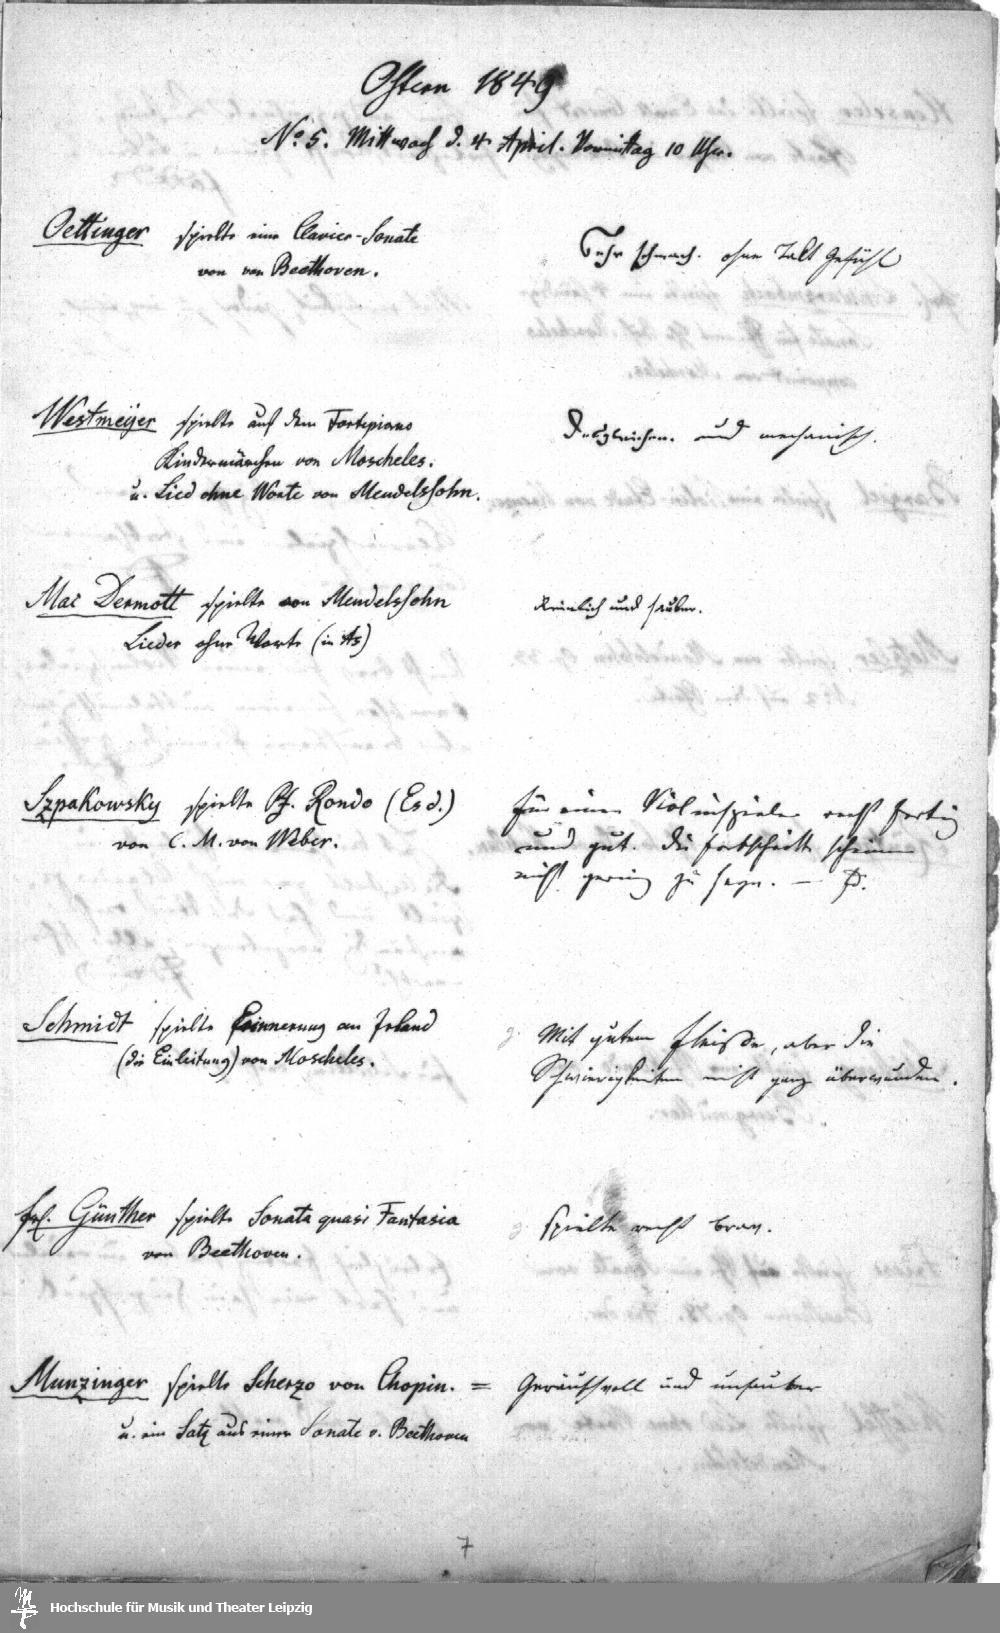 Ostern 1849
No 5. Mittwoch d. 4 April. Vormittag 10 Uhr.
Oettinger spielte eine Clavier-Sonate
von van Beethoven.
Sehr schwach. ohne Takt Gefühl
Westmeÿer spielte auf dem Fortepiano
Kindermärchen von Moscheles.
u. Lied ohne Worte von Mendelssohn.
Desgleichen. und mechanisch.
Mac Dermott spielte von Mendelssohn
Lieder ohne Worte (in As)
Reinlich und sauber.
Szpakowsky spielte Pf. Rondo (Es d.)
von C. M. von Weber.
Für einen Violinspieler recht fertig
und gut. Die Fortschritte scheinen
nicht gering zu seyn. —
Schmidt spielte Erinnerung an Irland
(die Einleitung) von Moscheles.
Mit gutem Fleiße, aber die
Schwierigkeiten nicht ganz überwunden.
Frl. Günther spielte Sonata quasi Fantasia
von Beethoven.
spielte recht brav.
Munzinger spielte Scherzo von Chopin. =
u. ein Satz aus einer Sonate v. Beethoven
Geräuschvoll und unsauber
7
Hochschule für Musik und Theater Leipzig